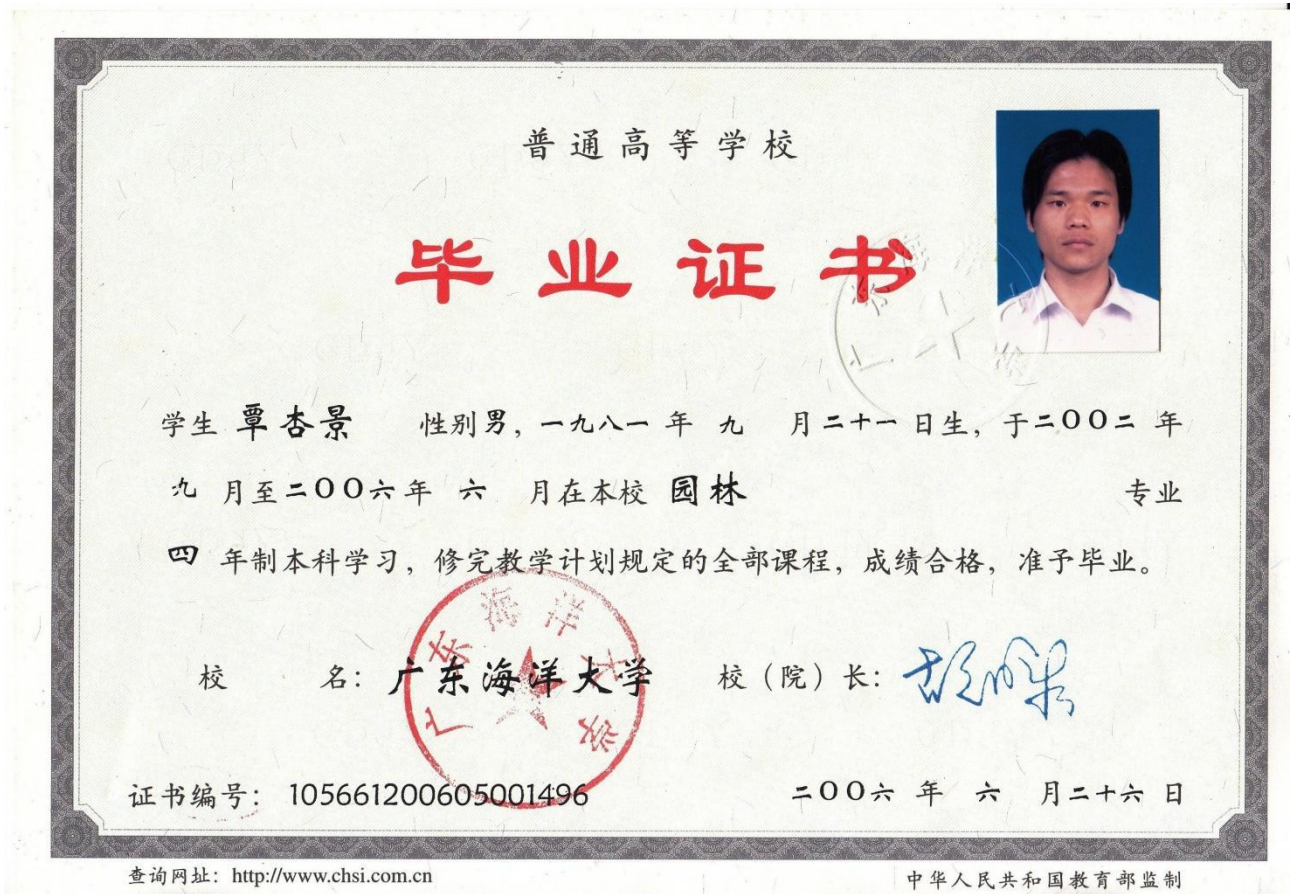 普通高等学校
毕业证书
学生 覃杏景 性别男，一九八一 年 九 月二十一 日生，于二〇〇二 年
九 月至二〇〇六年 六 月在本校 园林 专业
四 年制本科学习，修完教学计划规定的全部课程，成绩合格，准予毕业。
广东海洋大学
校 名：广东海洋大学 校（院）长：
证书编号：105661200605001496 二〇〇六 年 六 月二十六 日
查询网址：http://www.chsi.com.cn 中华人民共和国教育部监制